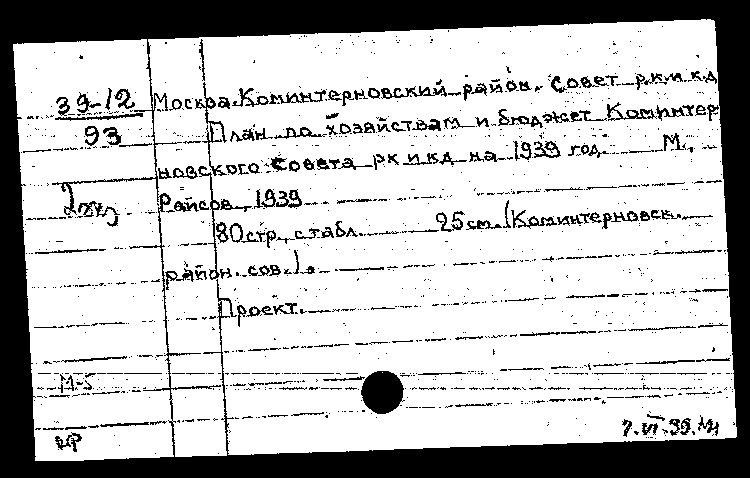 39-12 Москва. Коминтерновский район. Совет р.к.и к.д
93 План по хозяйствам и бюджет Коминтер
новского Совета рк и кд на 1939 год. М.,
2экз Райсов, 1939
80стр., с табл. 25см. (Коминтерновск.
район. сов.).
Проект.
М-5
7.VI.39.